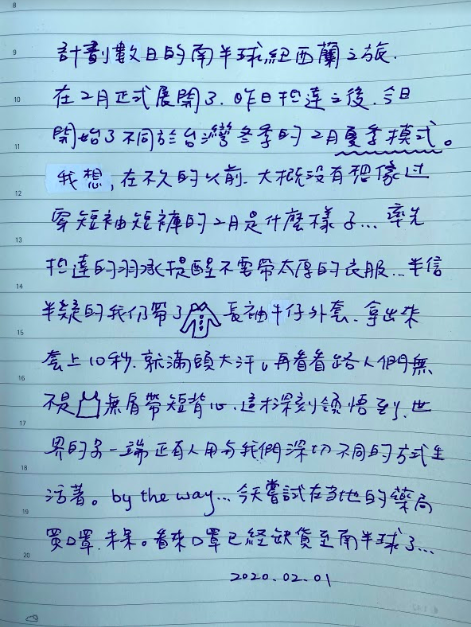 8
9
計劃數日的南半球紐西蘭之旅.
10
在2月正式展開了.昨日抵達之後.今日
11
開始了不同於台灣冬季的2月夏季模式。
12
我想,在不久的以前.大概沒有想像過
13
穿短袖短褲的2月是什麼樣子...率先
14
抵達的羽承提醒不需帶太厚的衣服...半信
15
半疑的我仍帶了長袖牛仔外套.拿出來
16
套上10秒.就滿頭大汗。再看看路人們無
17
不是無肩帶短背心.這才深刻領悟到.世
18
界的另一端正有人用與我們深切不同的方式生
19
活著。by the way...今天嘗試在當地的藥局
20
買口罩.未果。看來口罩已經缺貨至南半球了...
2020.02.01